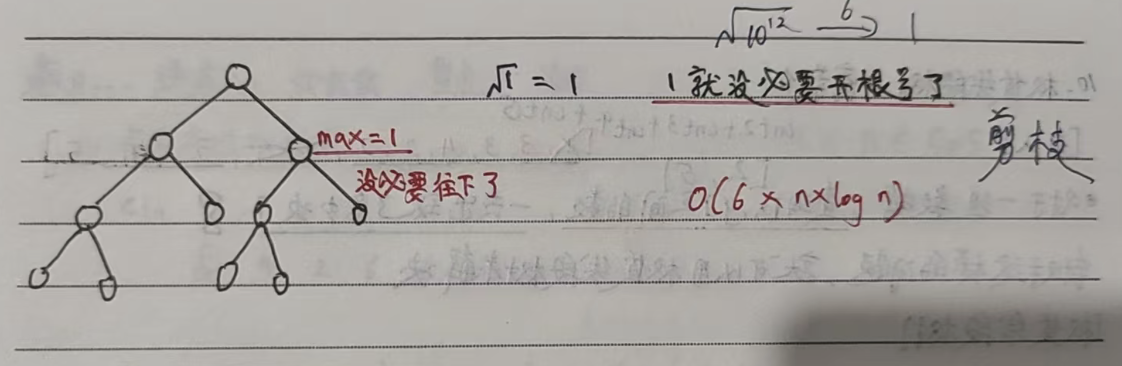 √10^12 —6→ 1
√1 = 1 1就没必要开根号了
剪枝
max=1
没必要往下了
O(6 × n × log n)